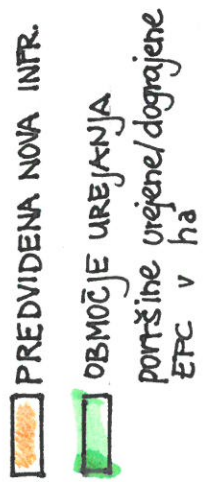 PREDVIDENA NOVA INFR.
OBMOČJE UREJANJA
površine urejene/dograjene
EPC v ha